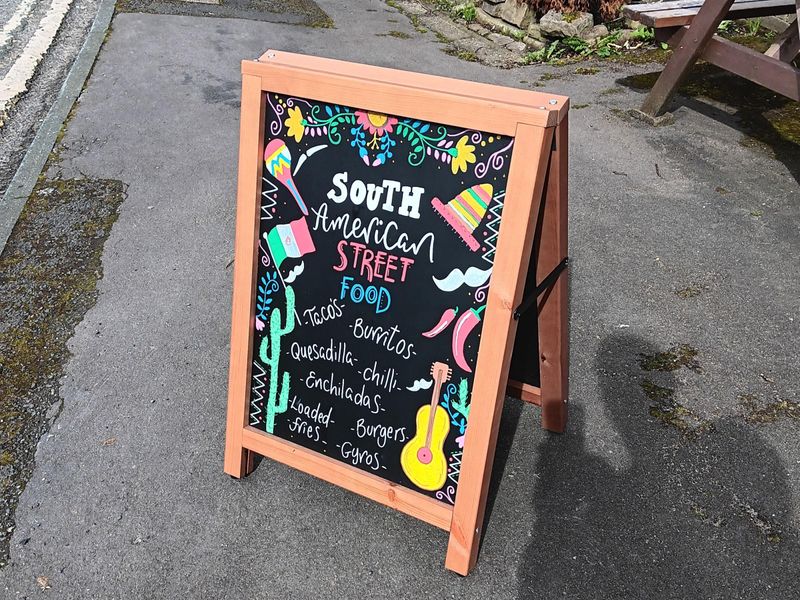 SOUTH
American
STREET
FOOD
-Taco's-
-Burritos-
-Quesadilla-
-chilli-
-Enchiladas-
-Loaded-
fries-
-Burgers-
-Gyros-